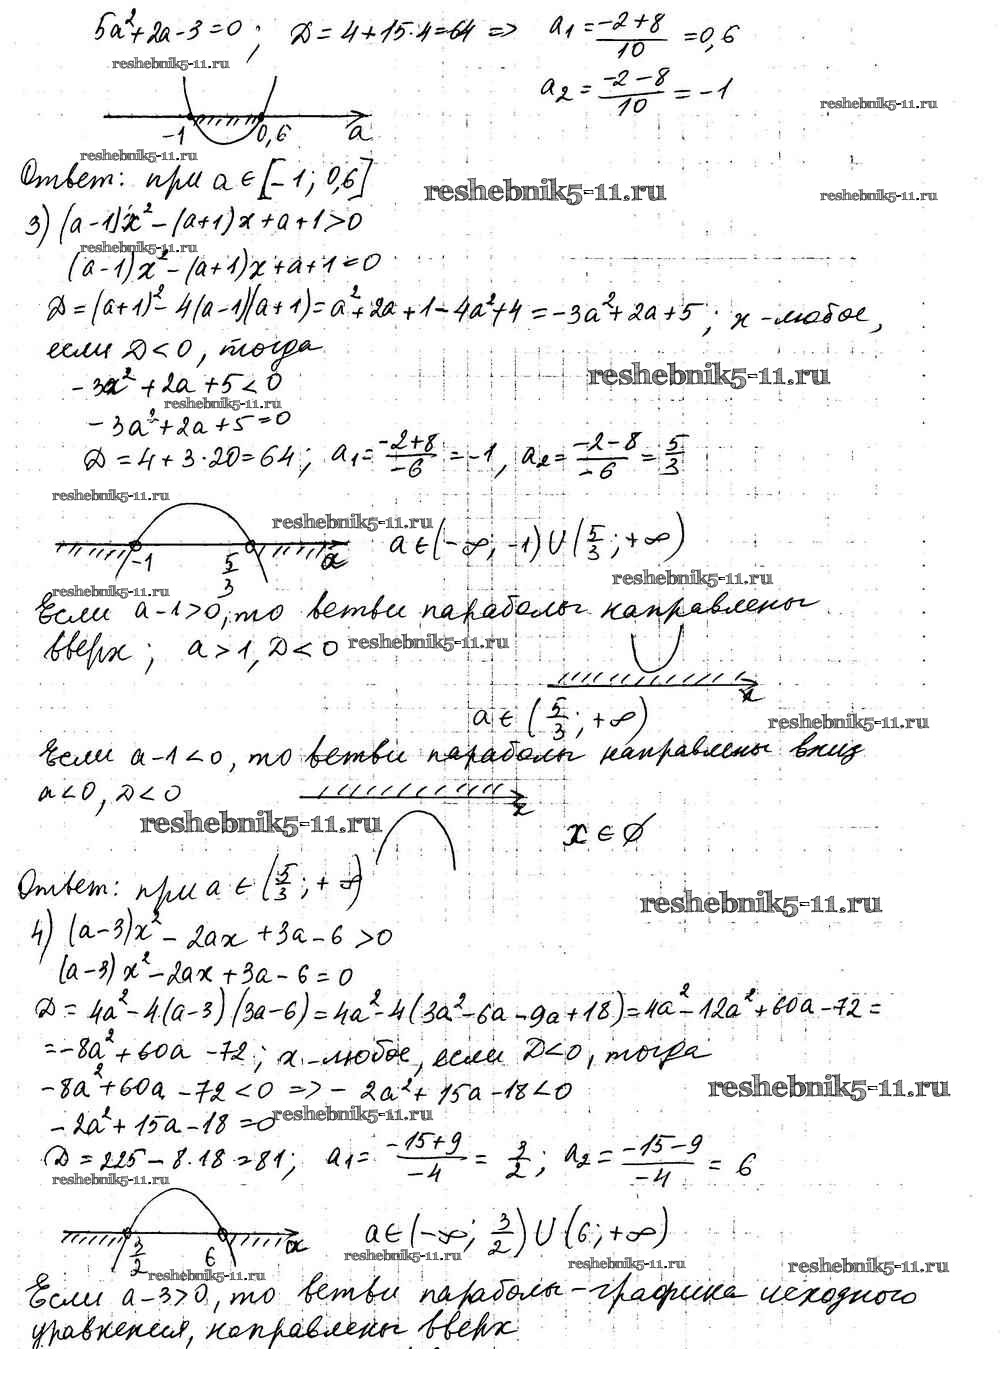 5a²+2a-3=0; D=4+15·4=64 => a₁=(-2+8)/10=0,6
reshebnik5-11.ru
a₂=(-2-8)/10=-1
reshebnik5-11.ru
-1 0,6 a
reshebnik5-11.ru
Ответ: при a∈[-1; 0,6]
reshebnik5-11.ru
reshebnik5-11.ru
3) (a-1)x²-(a+1)x+a+1>0
reshebnik5-11.ru
(a-1)x²-(a+1)x+a+1=0
D=(a+1)²-4(a-1)(a+1)=a²+2a+1-4a²+4=-3a²+2a+5; x-любое,
если D<0, тогда
-3a²+2a+5<0
reshebnik5-11.ru
reshebnik5-11.ru
-3a²+2a+5=0
D=4+3·20=64; a₁=(-2+8)/-6=-1, a₂=(-2-8)/-6=5/3
reshebnik5-11.ru
reshebnik5-11.ru
-1 5/3 a a∈(-∞; -1)∪(5/3; +∞)
reshebnik5-11.ru
reshebnik5-11.ru
Если a-1>0, то ветви параболы направлены
вверх; a>1, D<0
reshebnik5-11.ru
x
a∈(5/3; +∞)
reshebnik5-11.ru
Если a-1<0, то ветви параболы направлены вниз
a<0, D<0
x
reshebnik5-11.ru
x∈∅
Ответ: при a∈(5/3; +∞)
reshebnik5-11.ru
4) (a-3)x²-2ax+3a-6>0
(a-3)x²-2ax+3a-6=0
D=4a²-4(a-3)(3a-6)=4a²-4(3a²-6a-9a+18)=4a²-12a²+60a-72=
=-8a²+60a-72; x-любое, если D<0, тогда
-8a²+60a-72<0 => -2a²+15a-18<0
reshebnik5-11.ru
-2a²+15a-18=0
reshebnik5-11.ru
D=225-8·18=81; a₁=(-15+9)/-4=3/2; a₂=(-15-9)/-4=6
reshebnik5-11.ru
3/2 6 a a∈(-∞; 3/2)∪(6; +∞)
reshebnik5-11.ru
reshebnik5-11.ru
reshebnik5-11.ru
reshebnik5-11.ru
Если a-3>0, то ветви параболы-графика исходного
уравнения, направлены вверх